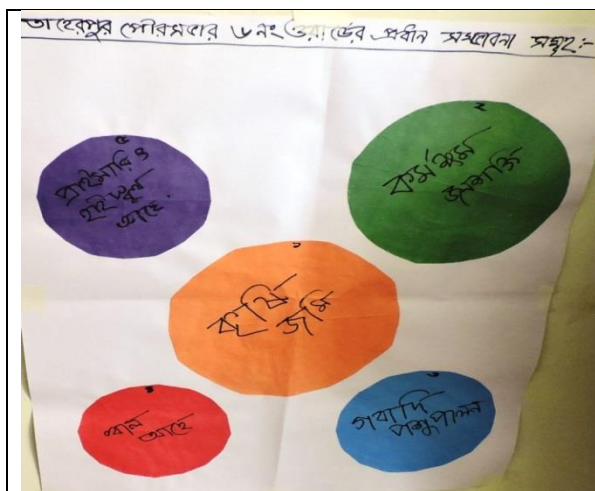 তাহেরপুর পৌরসভার ৬নং ওয়ার্ডের প্রধান সম্ভাবনা সমূহ:-
৫
প্রাইমারি ও
হাই স্কুল
আছে.
২
কর্মক্ষম
জনশক্তি
১
কৃষি
জমি
আছে
৩
গবাদি
পশুপালন